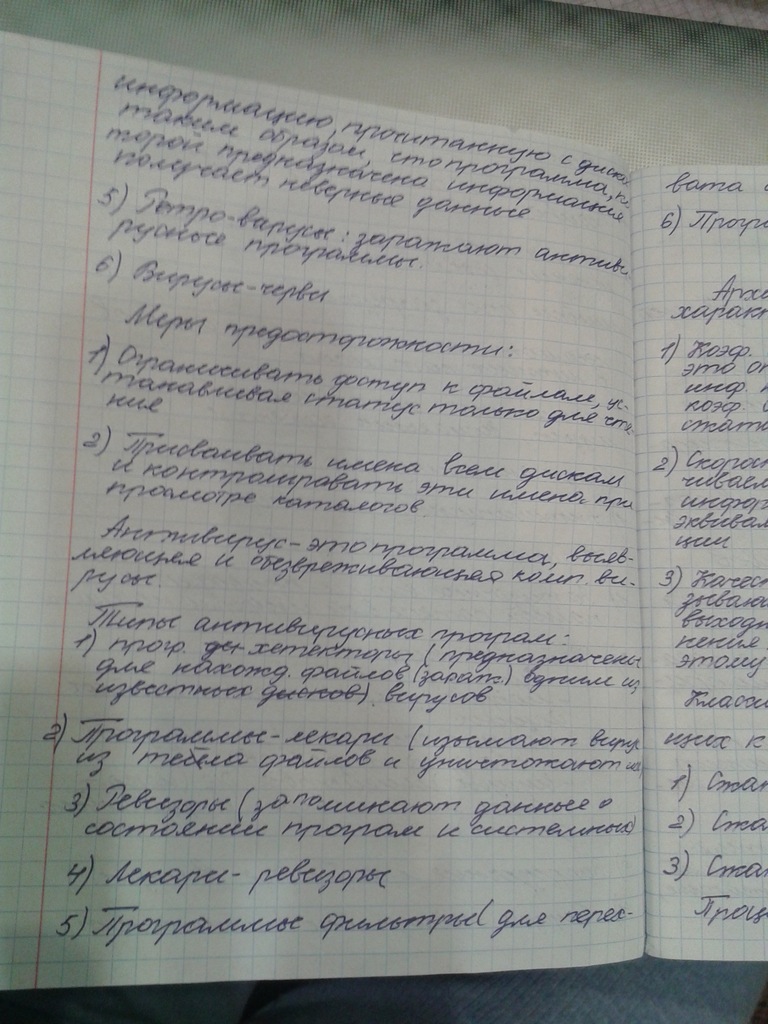 информацию, прочитанную с диска
таким образом, что программа, ко-
торой предназначена информация
получает неверные данные
5) Ретро-вирусы: заражают антиви-
русные программы.
6) Вирусы-черви
Меры предосторожности:
1) Ограничивать доступ к файлам, ус-
танавливая статус только для чте-
ния
2) Присваивать имена всем дискам
и контролировать эти имена при
просмотре каталогов.
Антивирус - это программа, выяв-
ляющая и обезвреживающая комп. ви-
русы.
Типы антивирусных програм:
1) прог. детекторы (предназначены
для нахожд. файлов (зараж.) одним из
известных дисков) вирусов
2) Программы-лекари (изымают вирус
из тела файлов и уничтожают их
3) Ревизоры (запоминают данные о
состоянии програм и системных)
4) Лекари - ревизоры
5) Программы фильтры (для перех-
вата
6) Прогр
Архи
характ
1) Коэф.
это от
инф.
коэф.
сжати
2) Скорос
чиваем
инфор
эквивал
ции
3) Качест
зываю
выходн
нения
этому
Класси
щих к
1) Стат
2) Ста
3) Стат
Проц